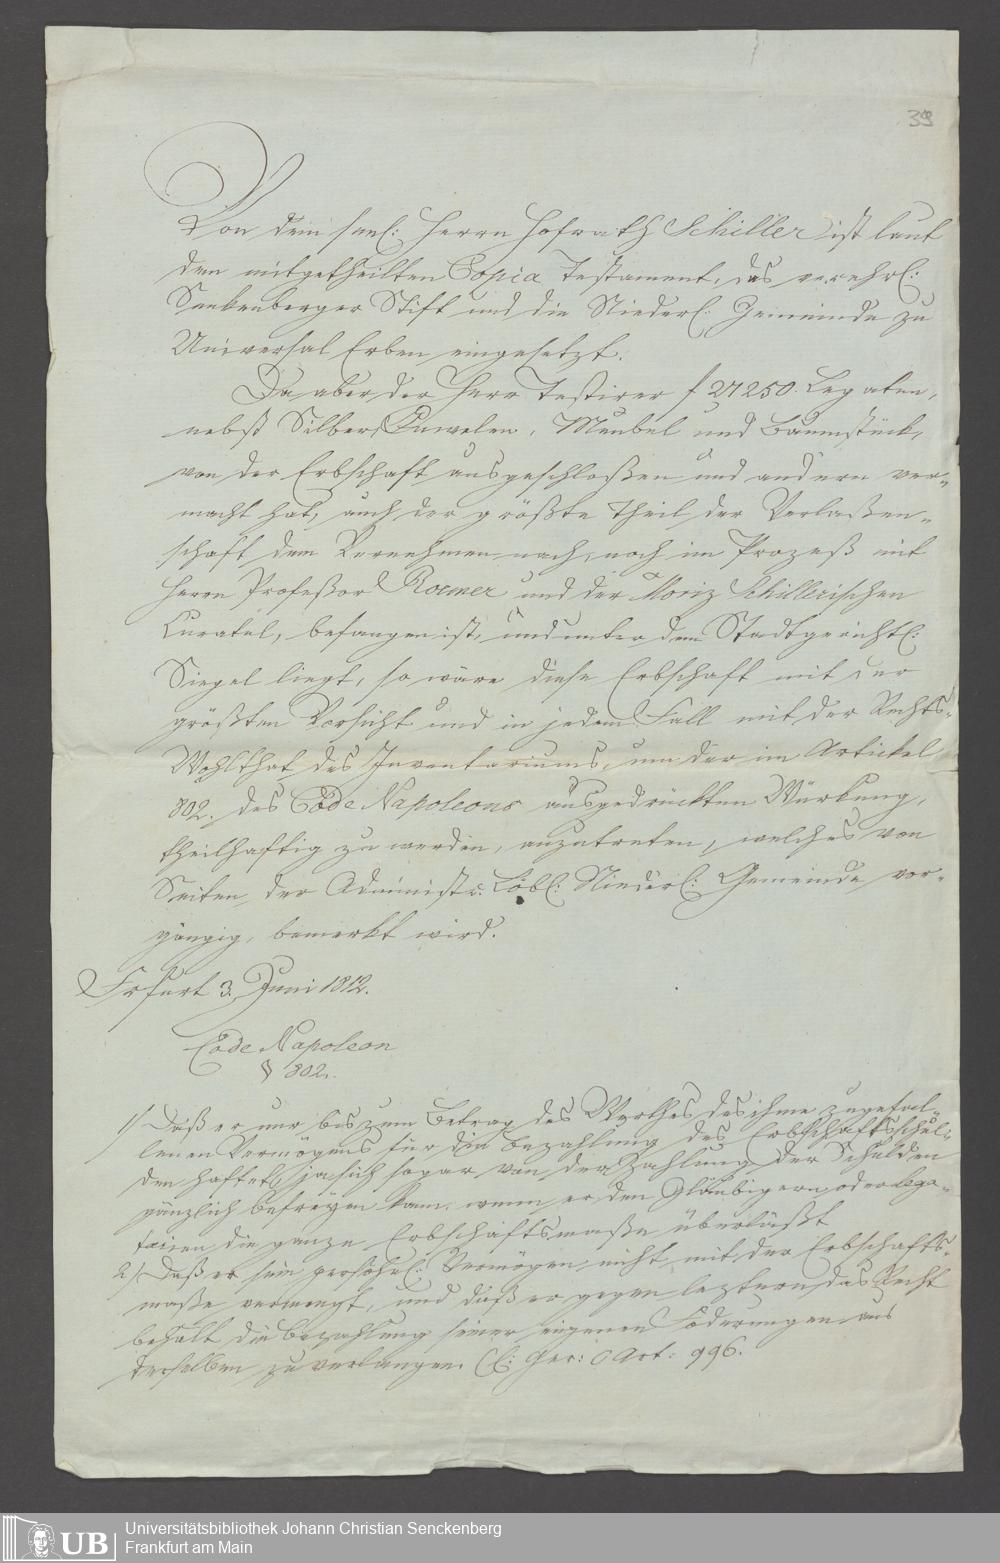 39
Von dem seel: Herrn Hofrath Schiller ist laut
dem mitgetheilten Copia Testament, das verehrl:
Senkenberger Stift und die Niederl: Gemeinde zu
Universal Erben eingesetzt.
Da aber der Herr Testirer f 27250. Legaten,
nebst Silber, Juwelen, Meubel und Baumstück,
von der Erbschaft ausgeschloßen und andern ver-
macht hat, auch der größte Theil der Verlaßen-
schaft dem Vernehmen nach, noch im Prozeß mit
Herrn Profeßor Roemer und der Moriz Schillerischen
Curatel, befangen ist, und unter dem Stadtgerichtl:
Siegel liegt, so wäre diese Erbschaft mit der
größten Vorsicht und in jedem Fall mit der Rechts-
Wohlthat des Inventariums, um der im Artickel
802. des Code Napoleons ausgedrückten Würkung,
theilhaftig zu werden, anzutreten, welches von
Seiten der Administr. Löbl: Niederl: Gemeinde vor-
gängig, bemerkt wird.
Frfurt 3. Juni 1812.
Code Napoleon
§ 802.
1/ Daß er nur bis zum Betrag des Werthes des ihme zugefal-
lenen Vermögens für die Bezahlung des Erbschaftsschul-
den haftet, ja sich sogar von der Zahlung der Schulden
gänzlich befreyen kann, wenn er den Gläubigern oder Lega-
tarien die ganze Erbschaftsmaße überläßt
2/. Daß er sein persöhnl: Vermögen nicht mit der Erbschafts-
maße vermengt, und daß er gegen leztern das Recht
behält die Bezahlung seiner eigenen Foderungen aus
derselben zu verlangen. Ger: Art: 996.
UB
Universitätsbibliothek Johann Christian Senckenberg
Frankfurt am Main